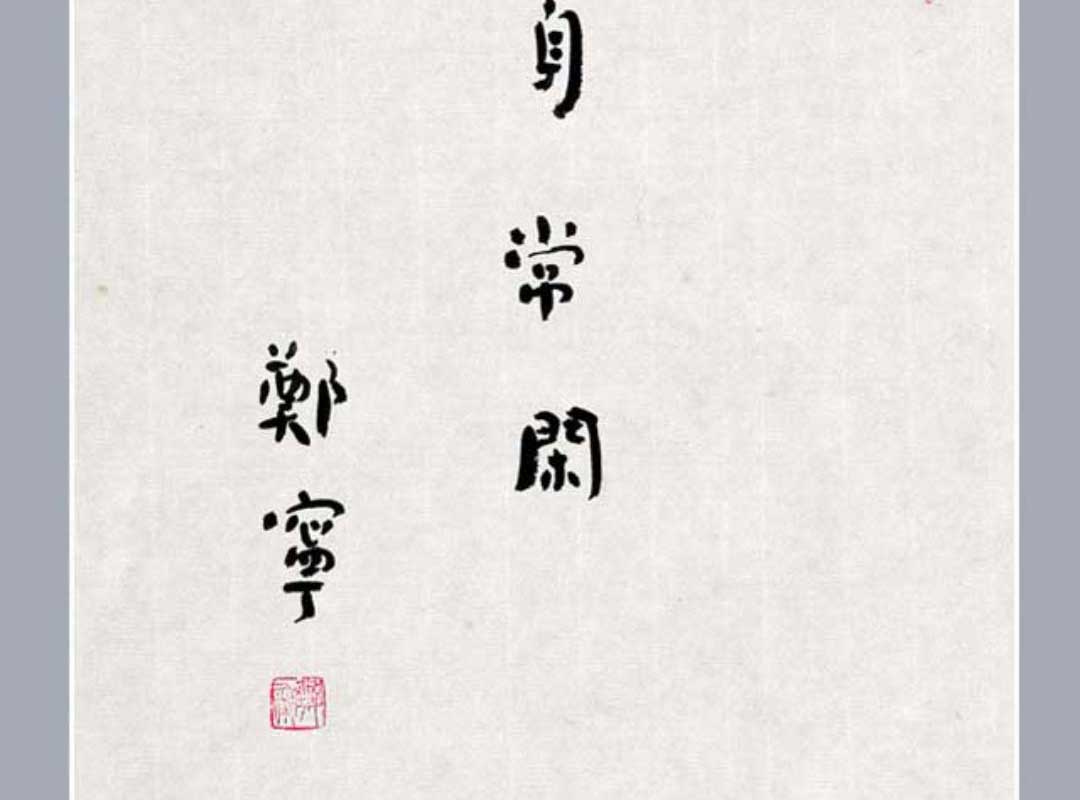 身常閑
鄭寧